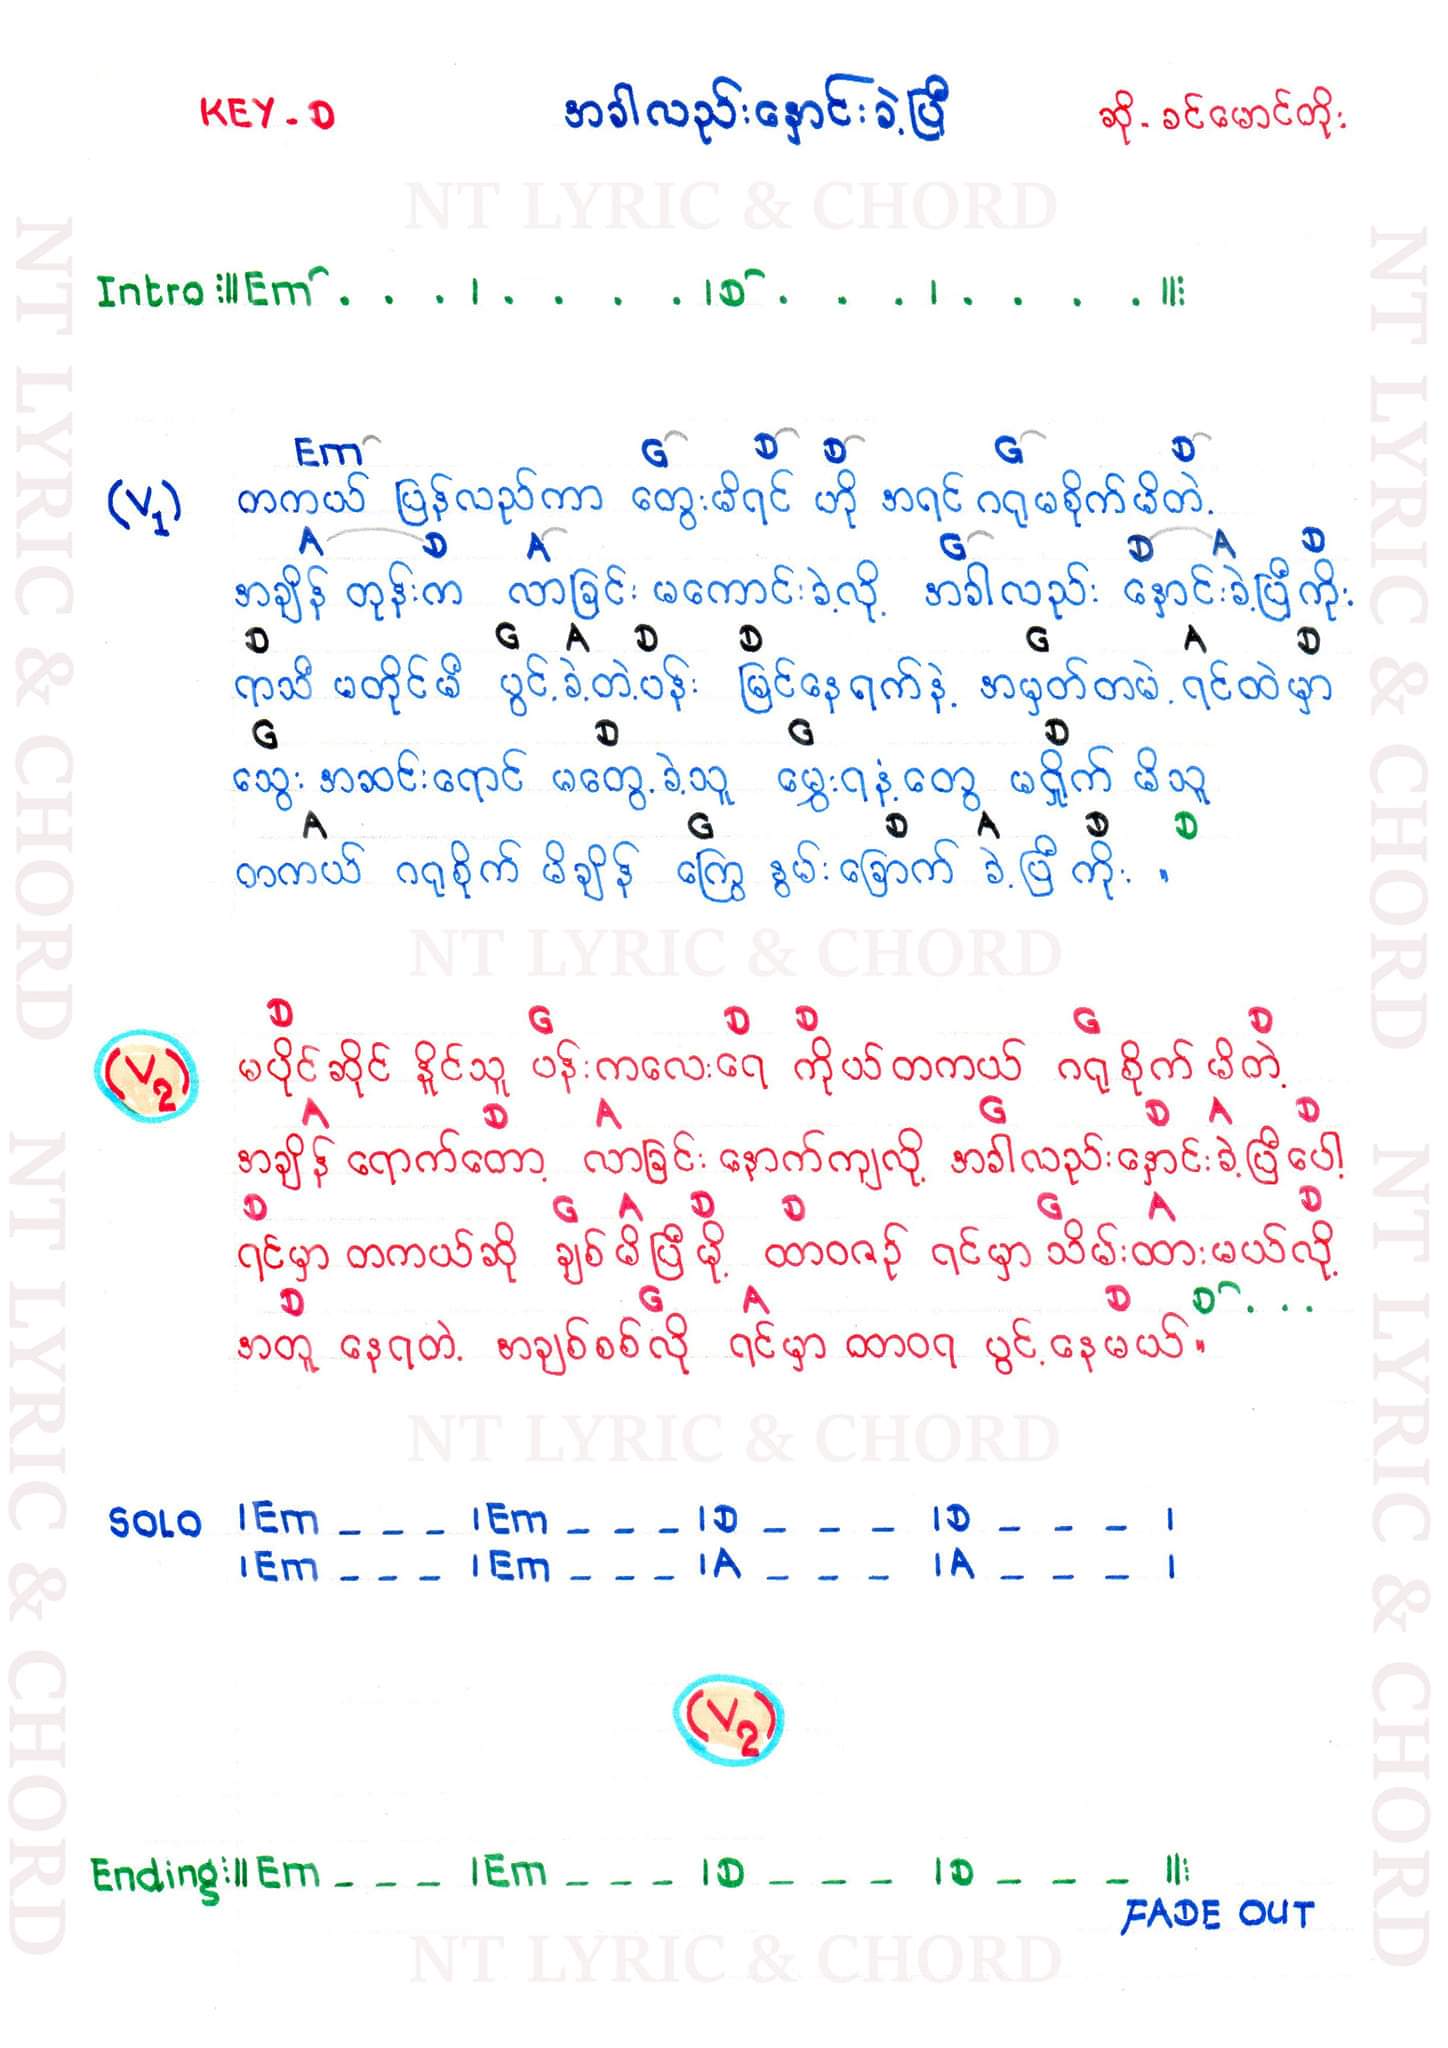 KEY-D
အခါလည်းနှောင်းခဲ့ပြီ
ဆို-ခင်မောင်တိုး
NT LYRIC & CHORD
Intro :||| Em . . . | . . . . | D . . . | . . . . |||:
Em G D D G D
(V1) တကယ် ပြန်လည်ကာ တွေးမိရင် ဟို အရင် ဂရုမစိုက်မိတဲ့
A D A G D A D
အချိန် တုန်းက လာခြင်း မကောင်းခဲ့လို့ အခါလည်း နှောင်းခဲ့ပြီကိုး
D G A D D G A D
ရာသီ မတိုင်မီ ပွင့်ခဲ့တဲ့ပန်း မြင်နေရက်နဲ့ အမှတ်တမဲ့ ရင်ထဲမှာ
G D G D
သွေး အဆင်းရောင် မတွေ့ခဲ့သူ မွှေးရနံ့တွေ မရှိုက် မိသူ
A G D A D D
တကယ် ဂရုစိုက် မိချိန် ကြွေ နွမ်းခြောက် ခဲ့ပြီ ကိုး ။
NT LYRIC & CHORD
D G D D G D
(V2) မပိုင်ဆိုင် နိူင်သူ ပန်းကလေးရေ ကိုယ်တကယ် ဂရုစိုက် မိတဲ့
A D A G D A D
အချိန် ရောက်တော့ လာခြင်း နောက်ကျလို့ အခါလည်းနှောင်းခဲ့ပြီပေါ့
D G A D D G A D
ရင်မှာ တကယ်ဆို ချစ်မိပြီမို့ ထာဝစဉ် ရင်မှာ သိမ်းထားမယ်လို့
D G A D D . . .
အတူ နေရတဲ့ အချစ်စစ်လို ရင်မှာ ထာဝရ ပွင့်နေမယ်။
NT LYRIC & CHORD
SOLO | Em _ _ _ | Em _ _ _ | D _ _ _ | D _ _ _ |
| Em _ _ _ | Em _ _ _ | A _ _ _ | A _ _ _ |
(V2)
Ending :||| Em _ _ _ | Em _ _ _ | D _ _ _ | D _ _ _ |||:
FADE OUT
NT LYRIC & CHORD
NT LYRIC & CHORD
NT LYRIC & CHORD
NT LYRIC & CHORD
NT LYRIC & CHORD